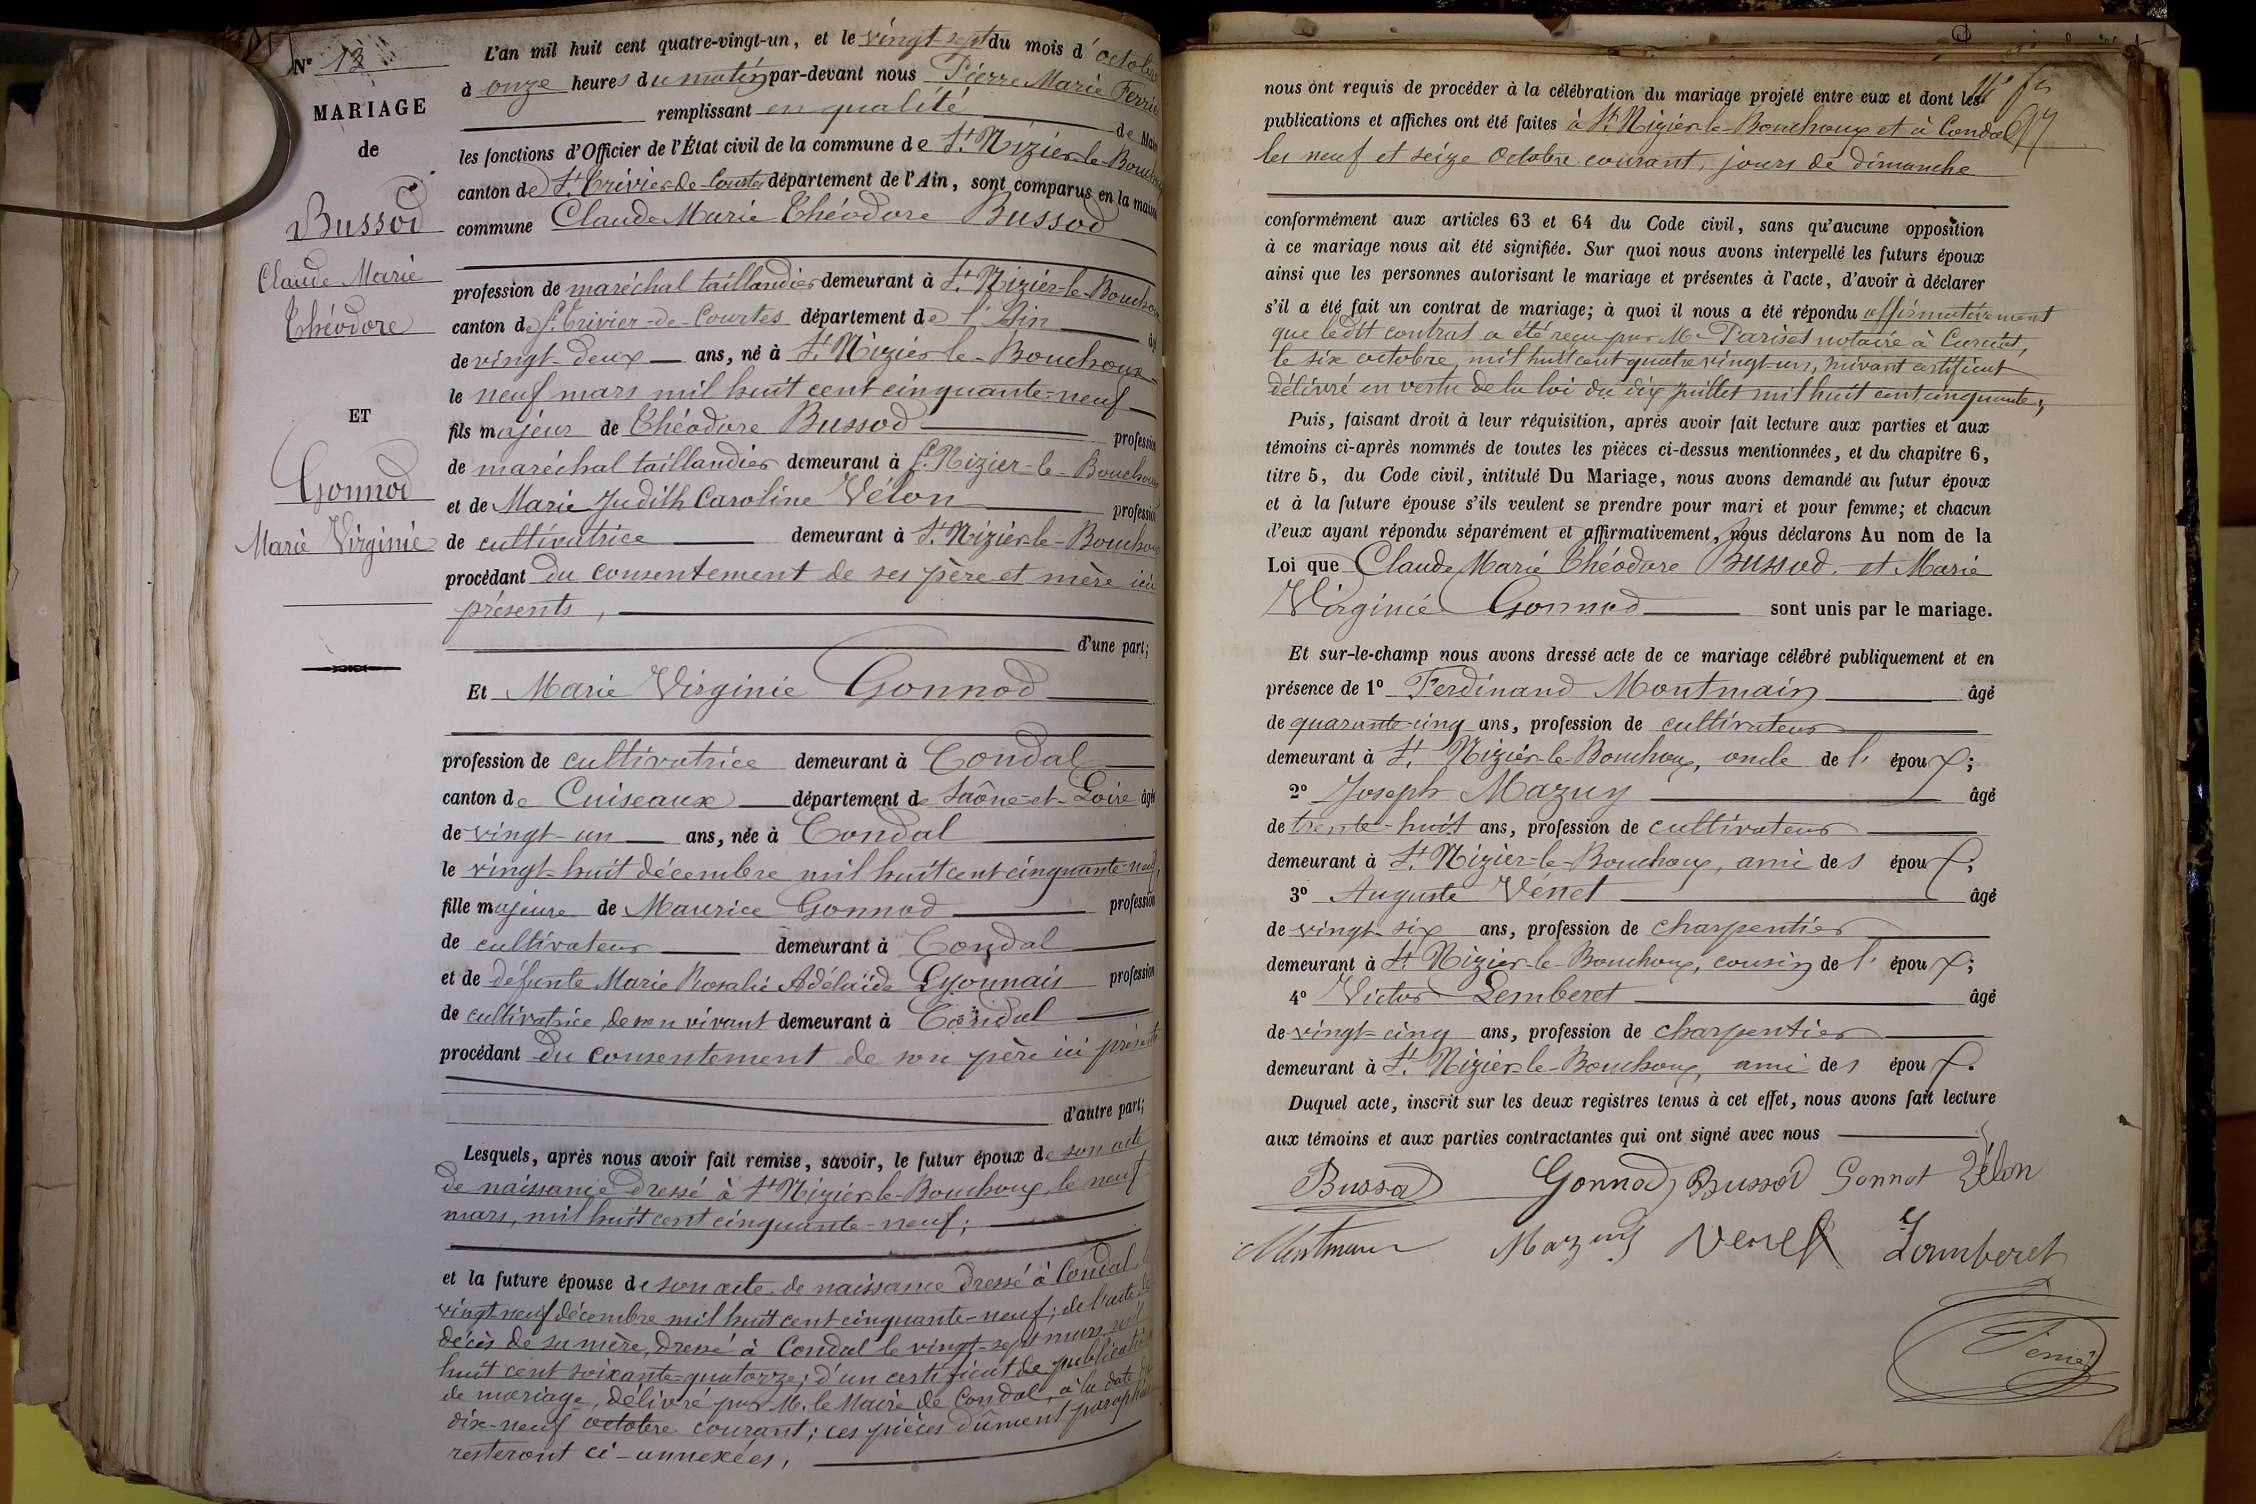 N° 13
MARIAGE
de
Bussod
Claude Marie
Théodore
ET
Gonnod
Marie Virginie
L'an mil huit cent quatre-vingt-un, et le vingt-sept du mois d'octobre
à onze heures du matin par-devant nous Pierre Marie Ferrier
remplissant en qualité de Maire
les fonctions d'Officier de l'État civil de la commune de St. Nizier-le-Bouchoux
canton de St. Trivier-de-Courtes département de l'Ain, sont comparus en la maison
commune Claude Marie Théodore Bussod
profession de maréchal taillandier demeurant à St. Nizier-le-Bouchoux
canton de St. Trivier-de-Courtes département de l'Ain âgé
de vingt-deux ans, né à St. Nizier-le-Bouchoux
le neuf mars mil huit cent cinquante-neuf
fils majeur de Théodore Bussod profession
de maréchal taillandier demeurant à St. Nizier-le-Bouchoux
et de Marie Judith Caroline Vélon profession
de cultivatrice demeurant à St. Nizier-le-Bouchoux
procédant du consentement de ses père et mère ici
présents,
d'une part;
Et Marie Virginie Gonnod
profession de cultivatrice demeurant à Condal
canton de Cuiseaux département de Saône-et-Loire âgée
de vingt-un ans, née à Condal
le vingt-huit décembre mil huit cent cinquante-neuf,
fille majeure de Maurice Gonnod profession
de cultivateur demeurant à Condal
et de défunte Marie Rosalie Adélaïde Lyonnais profession
de cultivatrice, de son vivant demeurant à Condal
procédant du consentement de son père ici présent
d'autre part;
Lesquels, après nous avoir fait remise, savoir, le futur époux de son acte
de naissance dressé à St Nizier-le-Bouchoux, le neuf
mars, mil huit cent cinquante-neuf;
et la future épouse de son acte de naissance dressé à Condal, le
vingt neuf décembre mil huit cent cinquante-neuf; de l'acte de
décès de sa mère, dressé à Condal le vingt-sept mars mil
huit cent soixante-quatorze; d'un certificat de publication
de mariage, délivré par M. le Maire de Condal, à la date du
dix-neuf octobre courant; ces pièces dûment paraphées
resteront ci-annexées,
97
nous ont requis de procéder à la célébration du mariage projeté entre eux et dont les
publications et affiches ont été faites à St Nizier-le-Bouchoux et à Condal
les neuf et seize Octobre courant, jours de dimanche
conformément aux articles 63 et 64 du Code civil, sans qu'aucune opposition
à ce mariage nous ait été signifiée. Sur quoi nous avons interpellé les futurs époux
ainsi que les personnes autorisant le mariage et présentes à l'acte, d'avoir à déclarer
s'il a été fait un contrat de mariage; à quoi il nous a été répondu affirmativement
que ledit contrat a été reçu par Me Pariset notaire à Curciat,
le six octobre, mil huit cent quatre vingt-un, suivant certificat
délivré en vertu de la loi du dix juillet mil huit cent cinquante;
Puis, faisant droit à leur réquisition, après avoir fait lecture aux parties et aux
témoins ci-après nommés de toutes les pièces ci-dessus mentionnées, et du chapitre 6,
titre 5, du Code civil, intitulé Du Mariage, nous avons demandé au futur époux
et à la future épouse s'ils veulent se prendre pour mari et pour femme; et chacun
d'eux ayant répondu séparément et affirmativement, nous déclarons Au nom de la
Loi que Claude Marie Théodore Bussod et Marie
Virginie Gonnod sont unis par le mariage.
Et sur-le-champ nous avons dressé acte de ce mariage célébré publiquement et en
présence de 1° Ferdinand Montmain âgé
de quarante-cinq ans, profession de cultivateur
demeurant à St. Nizier-le-Bouchoux, oncle de l'époux;
2° Joseph Mazuy âgé
de trente-huit ans, profession de cultivateur
demeurant à St. Nizier-le-Bouchoux, ami des époux;
3° Auguste Vénet âgé
de vingt-six ans, profession de charpentier
demeurant à St Nizier-le-Bouchoux, cousin de l'époux;
4° Victor Lemberet âgé
de vingt-cinq ans, profession de charpentier
demeurant à St. Nizier-le-Bouchoux, ami des époux.
Duquel acte, inscrit sur les deux registres tenus à cet effet, nous avons fait lecture
aux témoins et aux parties contractantes qui ont signé avec nous
Bussod Gonnod Bussod Gonnot Vélon
Montmain Mazuy Venet Lamberet
Ferrier